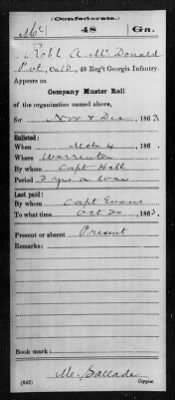 (Confederate.)
Mc 48 Ga.
Robt A. McDonald
Pvt, Co. , 48 Reg't Georgia Infantry.
Appears on
Company Muster Roll
of the organization named above,
for Nov & Dec , 1863
Enlisted:
When Mch 4 , 186
Where Warrenton
By whom Capt Hall
Period 3 yrs or War
Last paid:
By whom Capt Evans
To what time Oct , 1863
Present or absent Present
Remarks:
Book mark:
(642) Copyist.